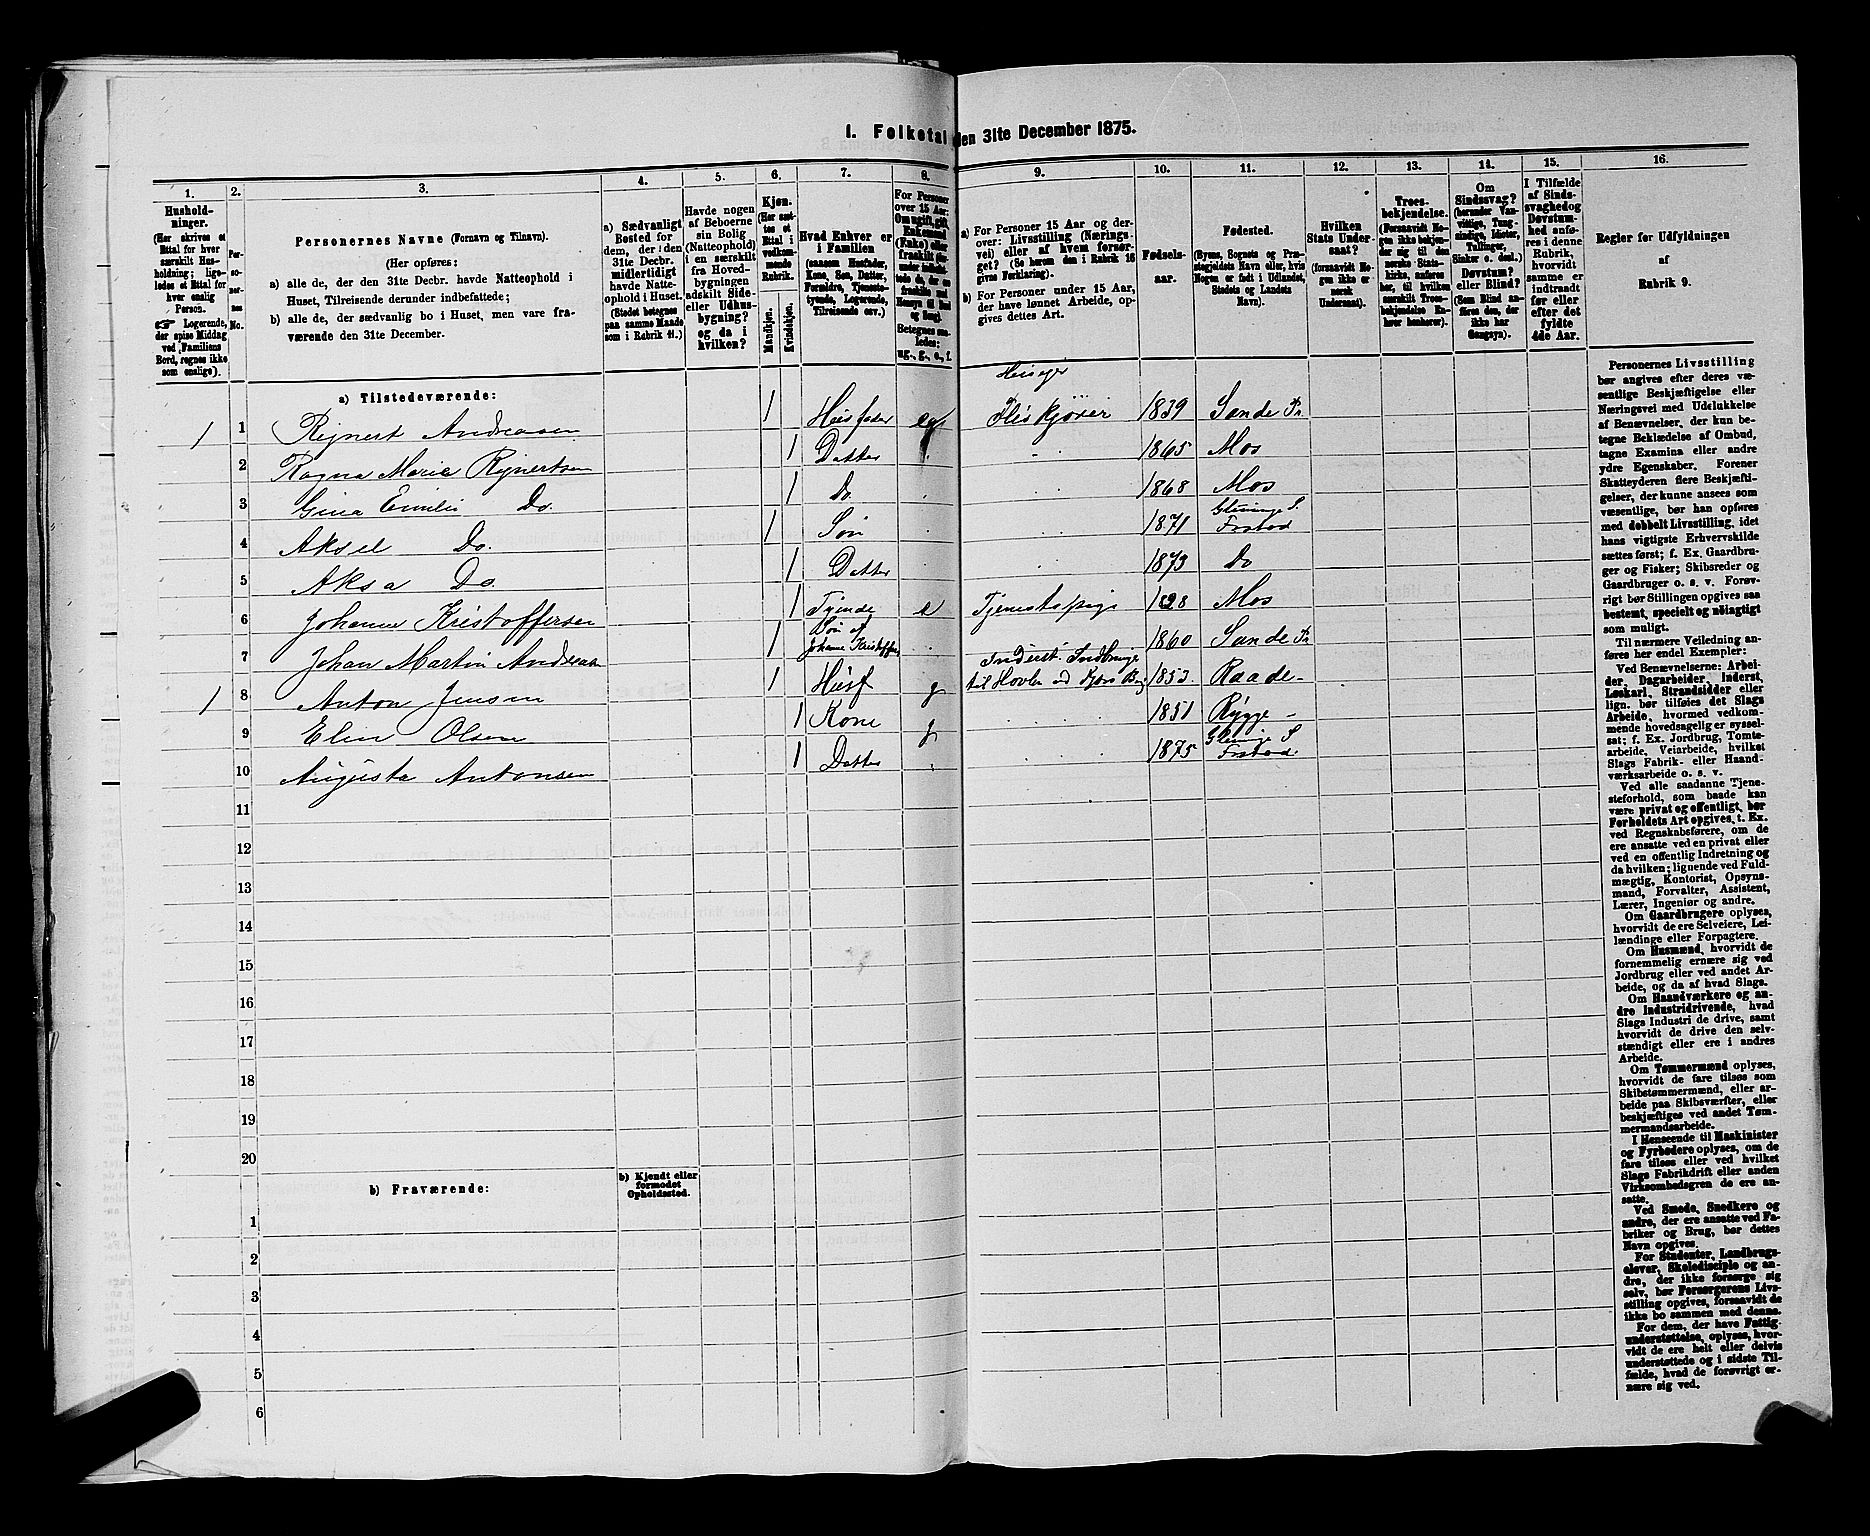 I. Folketal den 31te December 1875.
1. 2. 3. 4. 5. 6. 7. 8. 9. 10. 11. 12. 13. 14. 15. 16.
Hushold-
ninger.
(Her skrives et
Ettal for hver
særskilt Hus-
holdning; lige-
ledes et Ettal for
hver enslig
Person.
☞ Logerende,
der spise Middag
ved Familiens
Bord, regnes ikke
som enslige).
Per-
so-
ner-
nes
No.
Personernes Navne (Fornavn og Tilnavn).
(Her opføres:
a) alle de, der den 31te Decbr. havde Natteophold i
Huset, Tilreisende derunder indbefattede;
b) alle de, der sædvanlig bo i Huset, men vare fra-
værende den 31te December.
a) Sædvanligt
Bosted for
dem, der i den
31te Decbr.
midlertidigt
havde Natte-
ophold i Huset.
(Stedet betegnes
paa samme Maade
som i Rubrik 11.)
Havde nogen
af Beboerne
sin Bolig
(Natteophold)
i en særskilt
fra Hoved-
bygningen
adskilt Side-
eller Udhus-
bygning?
og da i
hvilken?
Kjøn.
(Her sæt-
tes et
Ettal i
vedkom-
mende
Rubrik.
Mandkjøn.
Kvindekjøn.
Hvad Enhver er
i Familien
(saasom Husfader,
Kone, Søn, Datter,
Forældre, Tjeneste-
tyende, Logerende,
Tilreisende osv.)
For Personer
over 15 Aar:
Om ugift, gift,
Enkemand
(Enke) eller
fraskilt
Betegnes saa-
ledes:
ug., g., e., f.
a) For Personer 15 Aar og der-
over: Livsstilling (Nærings-
vei) eller af hvem forsør-
get? (Se herom den i Rubrik 16
givne Forklaring).
b) For Personer under 15 Aar,
der have lønnet Arbeide, op-
gives dettes Art.
Fødsels-
aar.
Fødested.
(Byens, Sognets og Præ-
stegjeldets Navn eller, hvis
Nogen er født i Udlandet,
Stedets og Landets
Navn).
Hvilken
Stats Under-
saat?
(forsaavidt No-
gen ikke er
norsk
Undersaat).
Troes-
bekjendelse.
(Forsaavidt No-
gen ikke bekjen-
der sig til den
norske Stats-
kirke, anføres
her, til hvilken
særskilt Troes-
bekjendelse En-
hver henhører).
Om
Sindssvag?
(herunder Van-
vittige, Tung-
sindige, Idioter,
Tullinger,
Sinker o. desl.)
Døvstum?
eller Blind?
(Som Blind an-
føres den, der
ikke har
Gangsyn).
I Tilfælde
af Sinds-
svaghed og
Døvstum-
hed anfø-
res i denne
Rubrik,
hvorvidt
samme er
indtraadt
før eller
efter det
fyldte
4de Aar.
Regler for Udfyldningen
af
Rubrik 9.
a) Tilstedeværende:
Huseier
1 1 Rejnert Andreasen 1 Husfader e Fliskjører 1839 Sande Pr.
2 Ragna Marie Rejnertsen 1 Datter 1865 Mos
3 Gina Emilie Do. 1 Do 1868 Mos
4 Aksel Do. 1 Søn 1871 Gleminge S. Frstad
5 Aksa Do 1 Datter 1873 Do
6 Johanne Kristoffersen 1 Tyende e Tjenestepige 1828 Mos
7 Johan Martin Andreasen 1 Søn af Johanne Kristoffers 1860 Sande Pr
1 8 Anton Jensen 1 Husf g Inderst. til Høvler ved 1853 Raade
9 Elin Olsen 1 Kone g 1851 Rygge
10 Augusta Antonsen 1 Datter 1875 Gleminge S Frstad
11
12
13
14
15
16
17
18
19
20
b) Fraværende:
b) Kjendt eller
formodet
Opholdssted.
1
2
3
4
5
6
Personernes Livsstilling
bør angives efter deres væ-
sentlige Beskjæftigelse eller
Næringsvei med Udelukkelse
af Benævnelser, der kun be-
tegne Beklædelse af Ombud,
tagne Examina eller andre
ydre Egenskaber. Forener
Skatteyderen flere Beskjæfti-
gelser, der kunne ansees som
væsentlige, bør han opføres
med dobbelt Livsstilling, idet
hans vigtigste Erhvervskilde
sættes først; f. Ex. Gaardbru-
ger og Fisker; Skibsreder og
Gaardbruger o. s. v. Forøv-
rigt bør Stillingen opgives saa
bestemt, specielt og nøiagtigt
som muligt.
Til nærmere Veiledning an-
føres her endel Exempler:
Ved Benævnelserne: Arbei-
der, Dagarbeider, Inderst,
Løskarl, Strandsidder eller
lign. bør tilføies det Slags
Arbeide, hvormed vedkom-
mende hovedsagelig er syssel-
sat; f. Ex. Jordbrug, Tomte-
arbeide, Veiarbeide, hvilket
Slags Fabrik- eller Haand-
værksarbeide o. s. v.
Ved alle saadanne Tjene-
steforhold, som baade kan
være privat og offentligt, bør
Forholdets Art opgives, t. Ex.
ved Regnskabsførere, om de
ere ansatte ved en privat eller
ved en offentlig Indretning og
da hvilken; lignende ved Fuld-
mægtig, Kontorist, Opsyns-
mand, Forvalter, Assistent,
Lærer, Ingeniør og andre.
Om Gaardbrugere oplyses,
hvorvidt de ere Selveiere, Lei-
lændinge eller Forpagtere.
Om Husmænd, hvorvidt de
fornemmelig ernære sig ved
Jordbrug eller ved andet Ar-
beide, og da af hvad Slags.
Om Haandværkere og an-
dre Industridrivende, hvad
Slags Industri de drive, samt
hvorvidt de drive den selv-
stændigt eller ere i andres
Arbeide.
Om Tømmermænd oplyses,
hvorvidt de fare tilsøs som
Skibstømmermænd, eller ar-
beide paa Skibsværfter, eller
beskjæftiges ved andet Tøm-
mermandsarbeide.
I Henseende til Maskinister
og Fyrbødere oplyses, om de
fare tilsøs eller ved hvilket
Slags Fabrikdrift eller anden
Virksomhedsgren de ere an-
satte.
Ved Smede, Snedkere og
andre, der ere ansatte ved Fa-
briker og Brug, bør dettes
Navn opgives.
For Studenter, Landbrugs-
elever, Skoledisciple og an-
dre, der ikke forsørge sig
selv, bør Forsørgerens Livs-
stilling opgives, forsaavidt de
ikke bo sammen med denne.
For dem, der have Fattig-
understøttelse, oplyses, hvor-
vidt de ere helt eller delvis
understøttede og i sidste Til-
fælde, hvad de forøvrigt er-
nære sig ved.